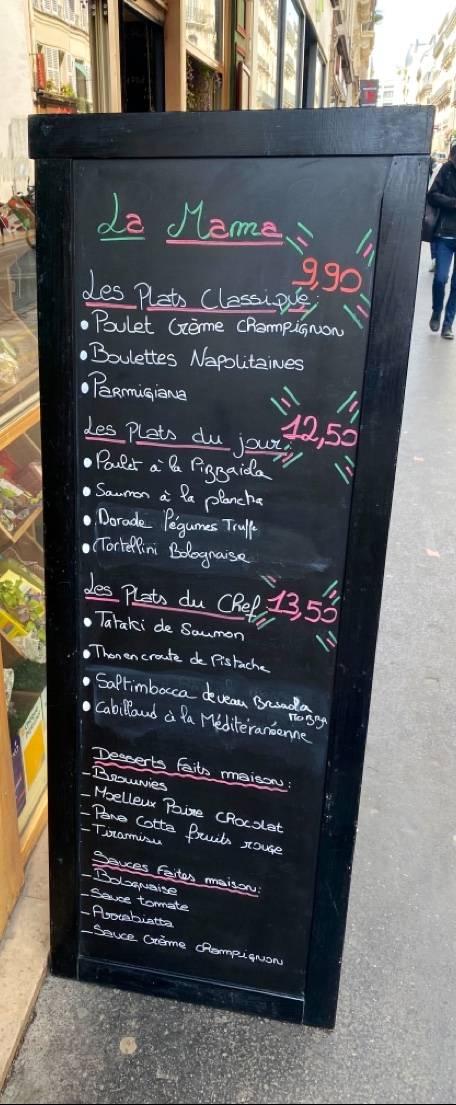 La Mama
9,90
Les Plats Classique:
• Poulet Crème Champignon
• Boulettes Napolitaines
• Parmigiana
Les Plats du jour: 12,50
• Poulet à la Pizzaiola
• Saumon à la plancha
• Dorade légumes Truffe
• Tortellini Bolognaise
Les Plats du Chef 13,50
• Tataki de Saumon
• Thon en croute de Pistache
• Saltimbocca de veau
• Cabillaud à la Méditéranéenne
Desserts faits maison:
- Brownies
- Moelleux Poire Chocolat
- Pana Cotta fruits rouge
- Tiramisu
Sauces Faites maison:
- Bolognaise
- Sauce tomate
- Arrabiatta
- Sauce Crème champignon